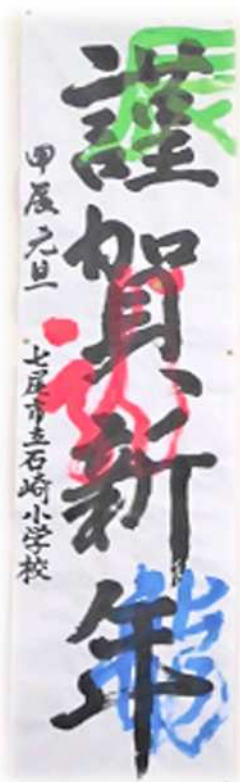 謹賀新年
辰
祝
龍
甲辰 元旦
七尾市立石崎小学校